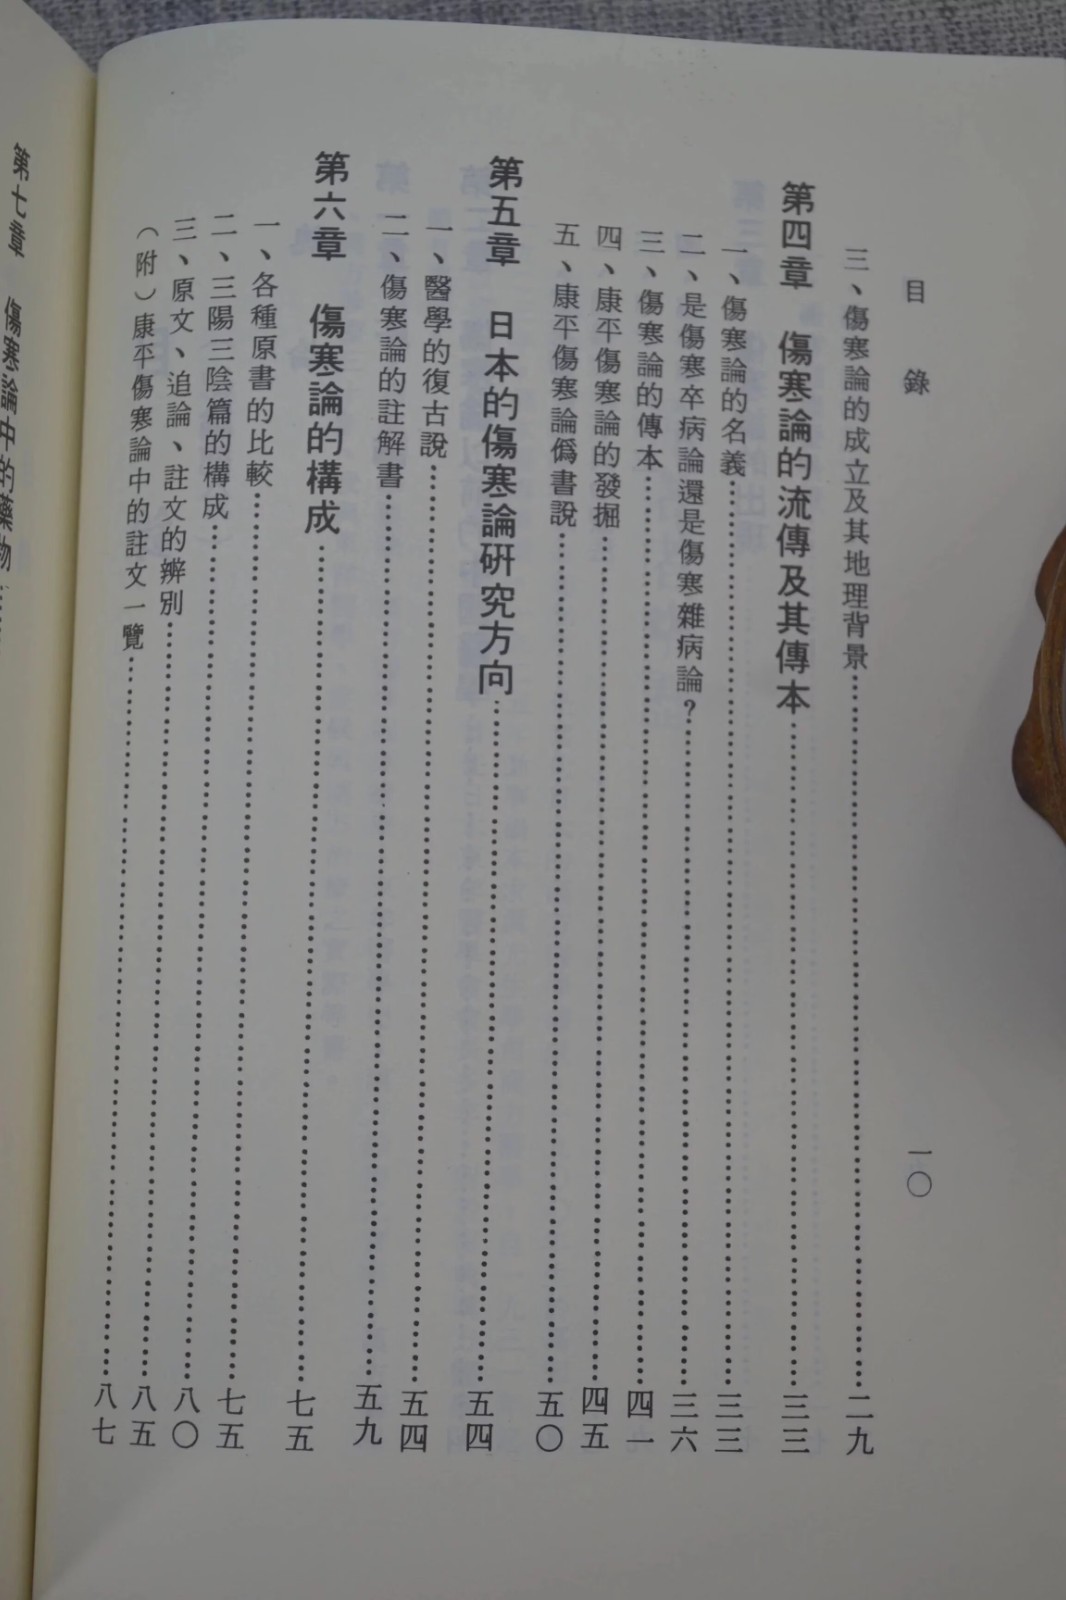 目 錄 一〇
三、傷寒論的成立及其地理背景……二九
第四章 傷寒論的流傳及其傳本……三三
一、傷寒論的名義……三三
二、是傷寒卒病論還是傷寒雜病論？……三六
三、傷寒論的傳本……四一
四、康平傷寒論的發掘……四五
五、康平傷寒論僞書說……五〇
第五章 日本的傷寒論研究方向……五四
一、醫學的復古說……五四
二、傷寒論的註解書……五九
第六章 傷寒論的構成……七五
一、各種原書的比較……七五
二、三陽三陰篇的構成……八〇
三、原文、追論、註文的辨別……八五
（附）康平傷寒論中的註文一覽……八七
第七章 傷寒論中的藥物……